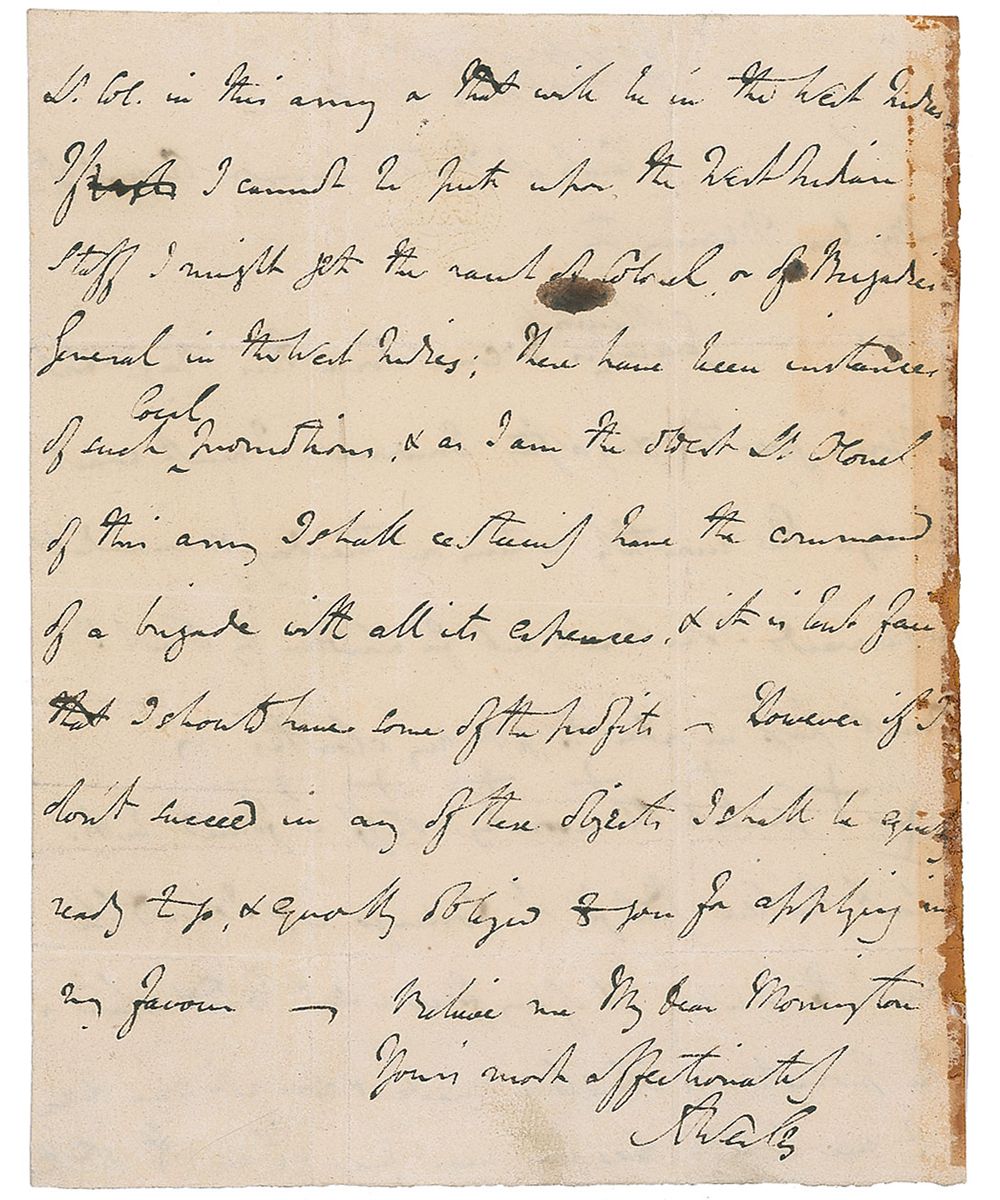 Lt. Col. in this army or that will be in the West Indies.
If I cannot be put upon the West Indian
Staff I might get the rank of Colonel, or of Brigadier
General in the West Indies; There have been instances
local
of such promotions, & as I am the oldest Lt Colonel
of this army I shall certainly have the command
of a brigade with all its expences, & it is but fair
that I should have some of the profits — However if I
don't succeed in any of these objects I shall be equally
ready to go, & equally obliged to you for applying in
my favour — Believe me My dear Mornington
Yours most affectionately
A Wesley